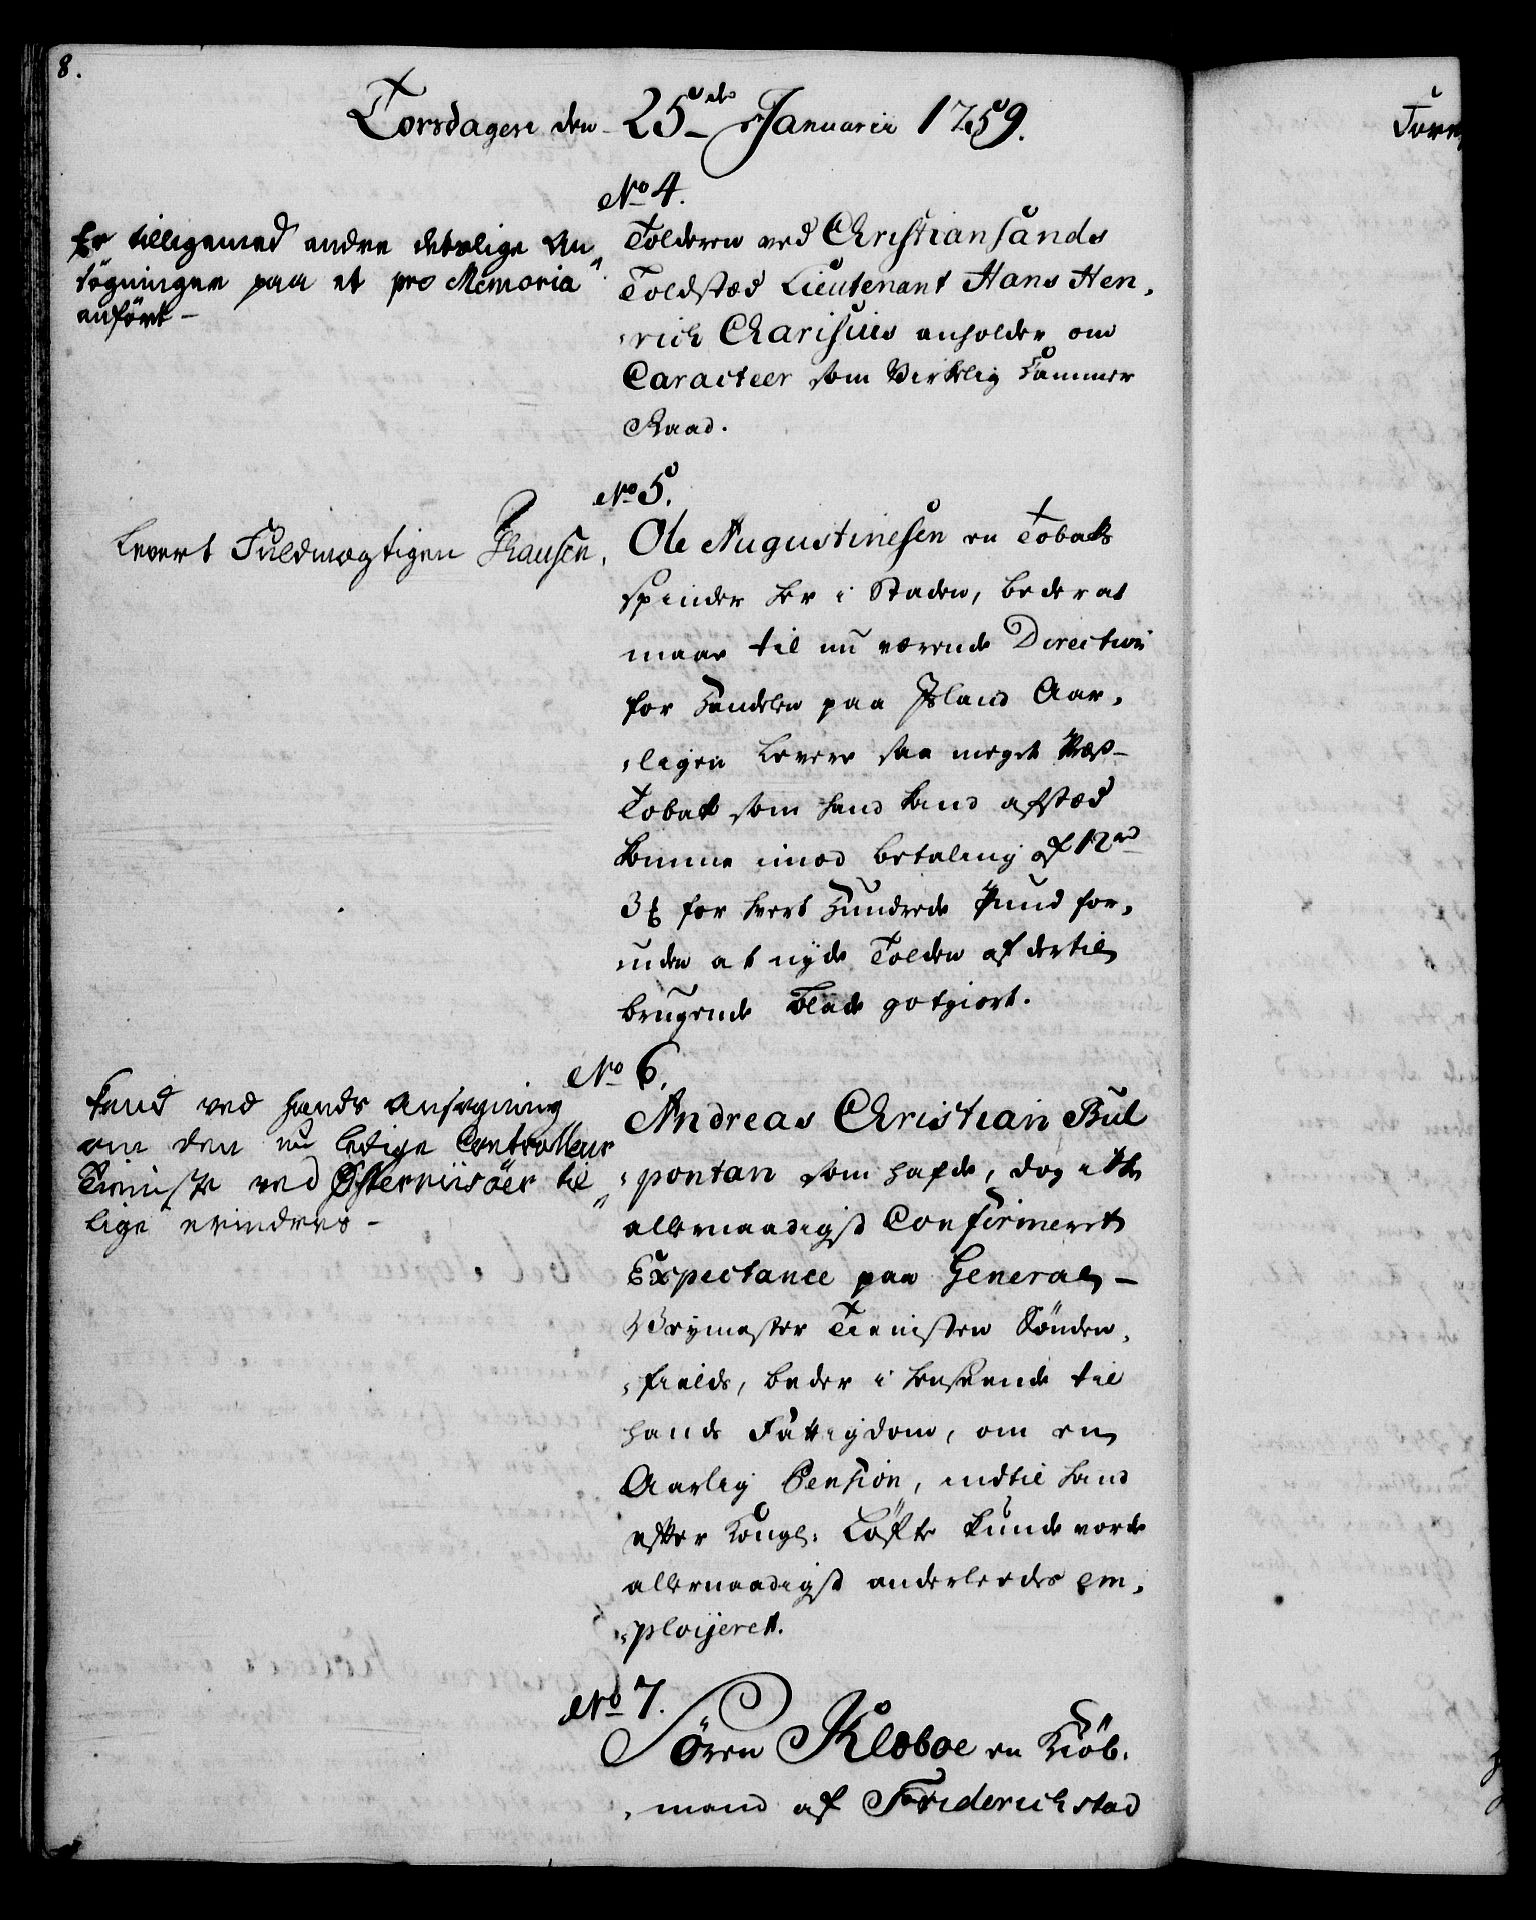 8.
Torsdagen den 25de Januarii 1759.
No 4.
Er tilligemed andre deslige An„
søgninger paa et pro Memoria
anført –
Tolderen ved Christiansands
Toldsted Lieutenant Hans Hen„
„rich Charisius anholder om
Caracteer som Virkelig Kammer
Raad.
No 5.
Levert Fuldmægtigen Thausen.
Ole Augustinesen en Tobaks
spinder her i Staden, beder at
maae til nu værende Direction
for Handelen paa Island Aar„
„ligen levere saa meget Præs-
Tobak som hand kand afsted
komme imod betaling af 12 rd
3 ƒ for hvert Hundrede Pund for„
uden at nyde Tolden af dertil
brugende Blade gotgiort.
No 6.
kand ved hands Ansøgning
om den nu ledige Controlleur
Tieniste ved Østerriisöer til„
lige erindres –
Andreas Christian Bul
„pontan som hafde, dog ikke
allernaadigst Confirmeret
Expectance paa General-
Veymester Tienisten Sønden„
„fields, beder i henseende til
hands Fattigdom, om en
Aarlig Pension, indtil hand
efter Kongl: Løfte kunde vorde
allernaadigst anderleedes em„
„ploijeret.
No 7.
Søren Kleboe en Kiöb„
„mand af Friderichstad
Torr